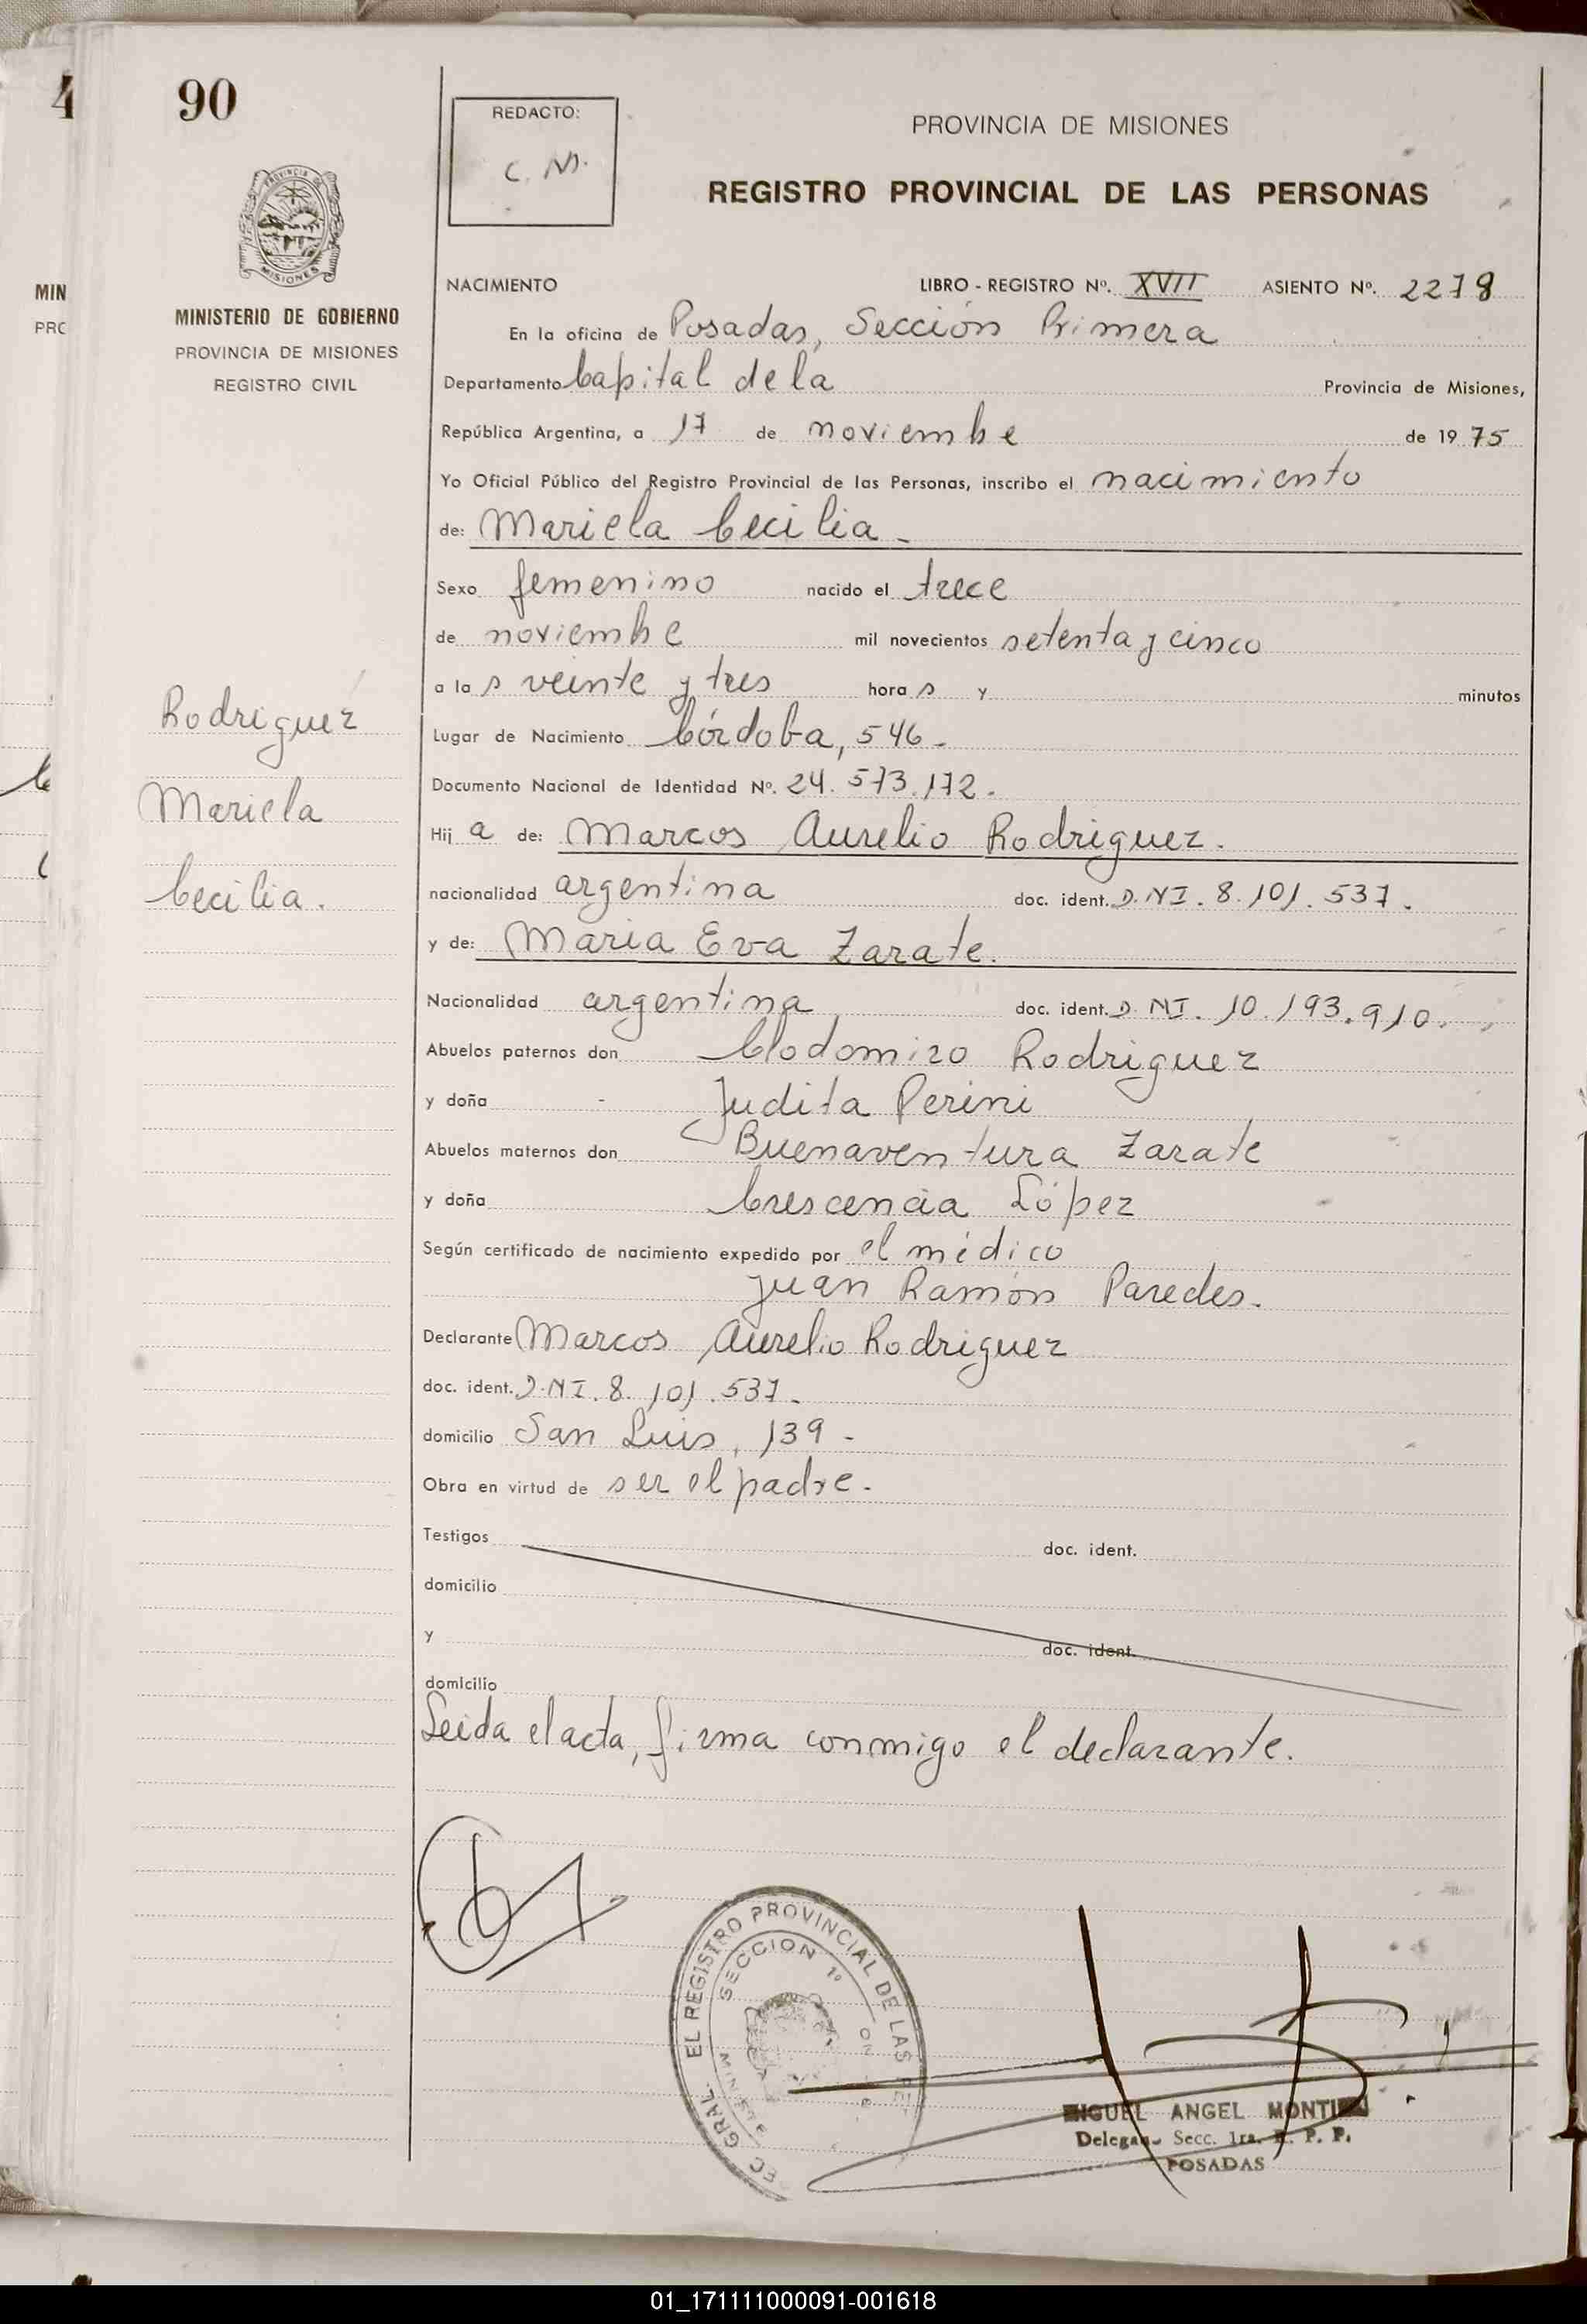 4
90
REDACTO:
C. M.
PROVINCIA DE MISIONES
REGISTRO PROVINCIAL DE LAS PERSONAS
PROVINCIA DE
MISIONES
MIN
PRO
MINISTERIO DE GOBIERNO
PROVINCIA DE MISIONES
REGISTRO CIVIL
NACIMIENTO LIBRO - REGISTRO Nº. XVII ASIENTO Nº. 2278
En la oficina de Posadas, Sección Primera
Departamento Capital de la Provincia de Misiones,
República Argentina, a 17 de noviembre de 1975
Yo Oficial Público del Registro Provincial de las Personas, inscribo el nacimiento
de: Mariela Cecilia -
Sexo femenino nacido el trece
de noviembre mil novecientos setenta y cinco
a la s veinte y tres hora s y minutos
Lugar de Nacimiento Córdoba, 546 -
Documento Nacional de Identidad Nº. 24.573.172.
Hij a de: Marcos Aurelio Rodriguez.
nacionalidad argentina doc. ident. D.NI. 8.101.537.
y de: Maria Eva Zarate.
Nacionalidad argentina doc. ident. D.NI. 10.193.910.
Abuelos paternos don Clodomiro Rodriguez
y doña - Judita Perini
Abuelos maternos don Buenaventura Zarate
y doña Crescencia López
Según certificado de nacimiento expedido por el médico
Juan Ramón Paredes.
Declarante Marcos Aurelio Rodriguez
doc. ident. D.NI. 8.101.537.
domicilio San Luis, 139 -
Obra en virtud de ser el padre.
Testigos doc. ident.
domicilio
y doc. ident.
domicilio
Leida el acta, firma conmigo el declarante.
Rodriguez
Mariela
Cecilia.
GRAL. EL REGISTRO PROVINCIAL DE LAS PE
SECCION 1º
MIGUEL ANGEL MONTIEL
Delegado Secc. 1ra. R. P. P.
POSADAS
01_171111000091-001618